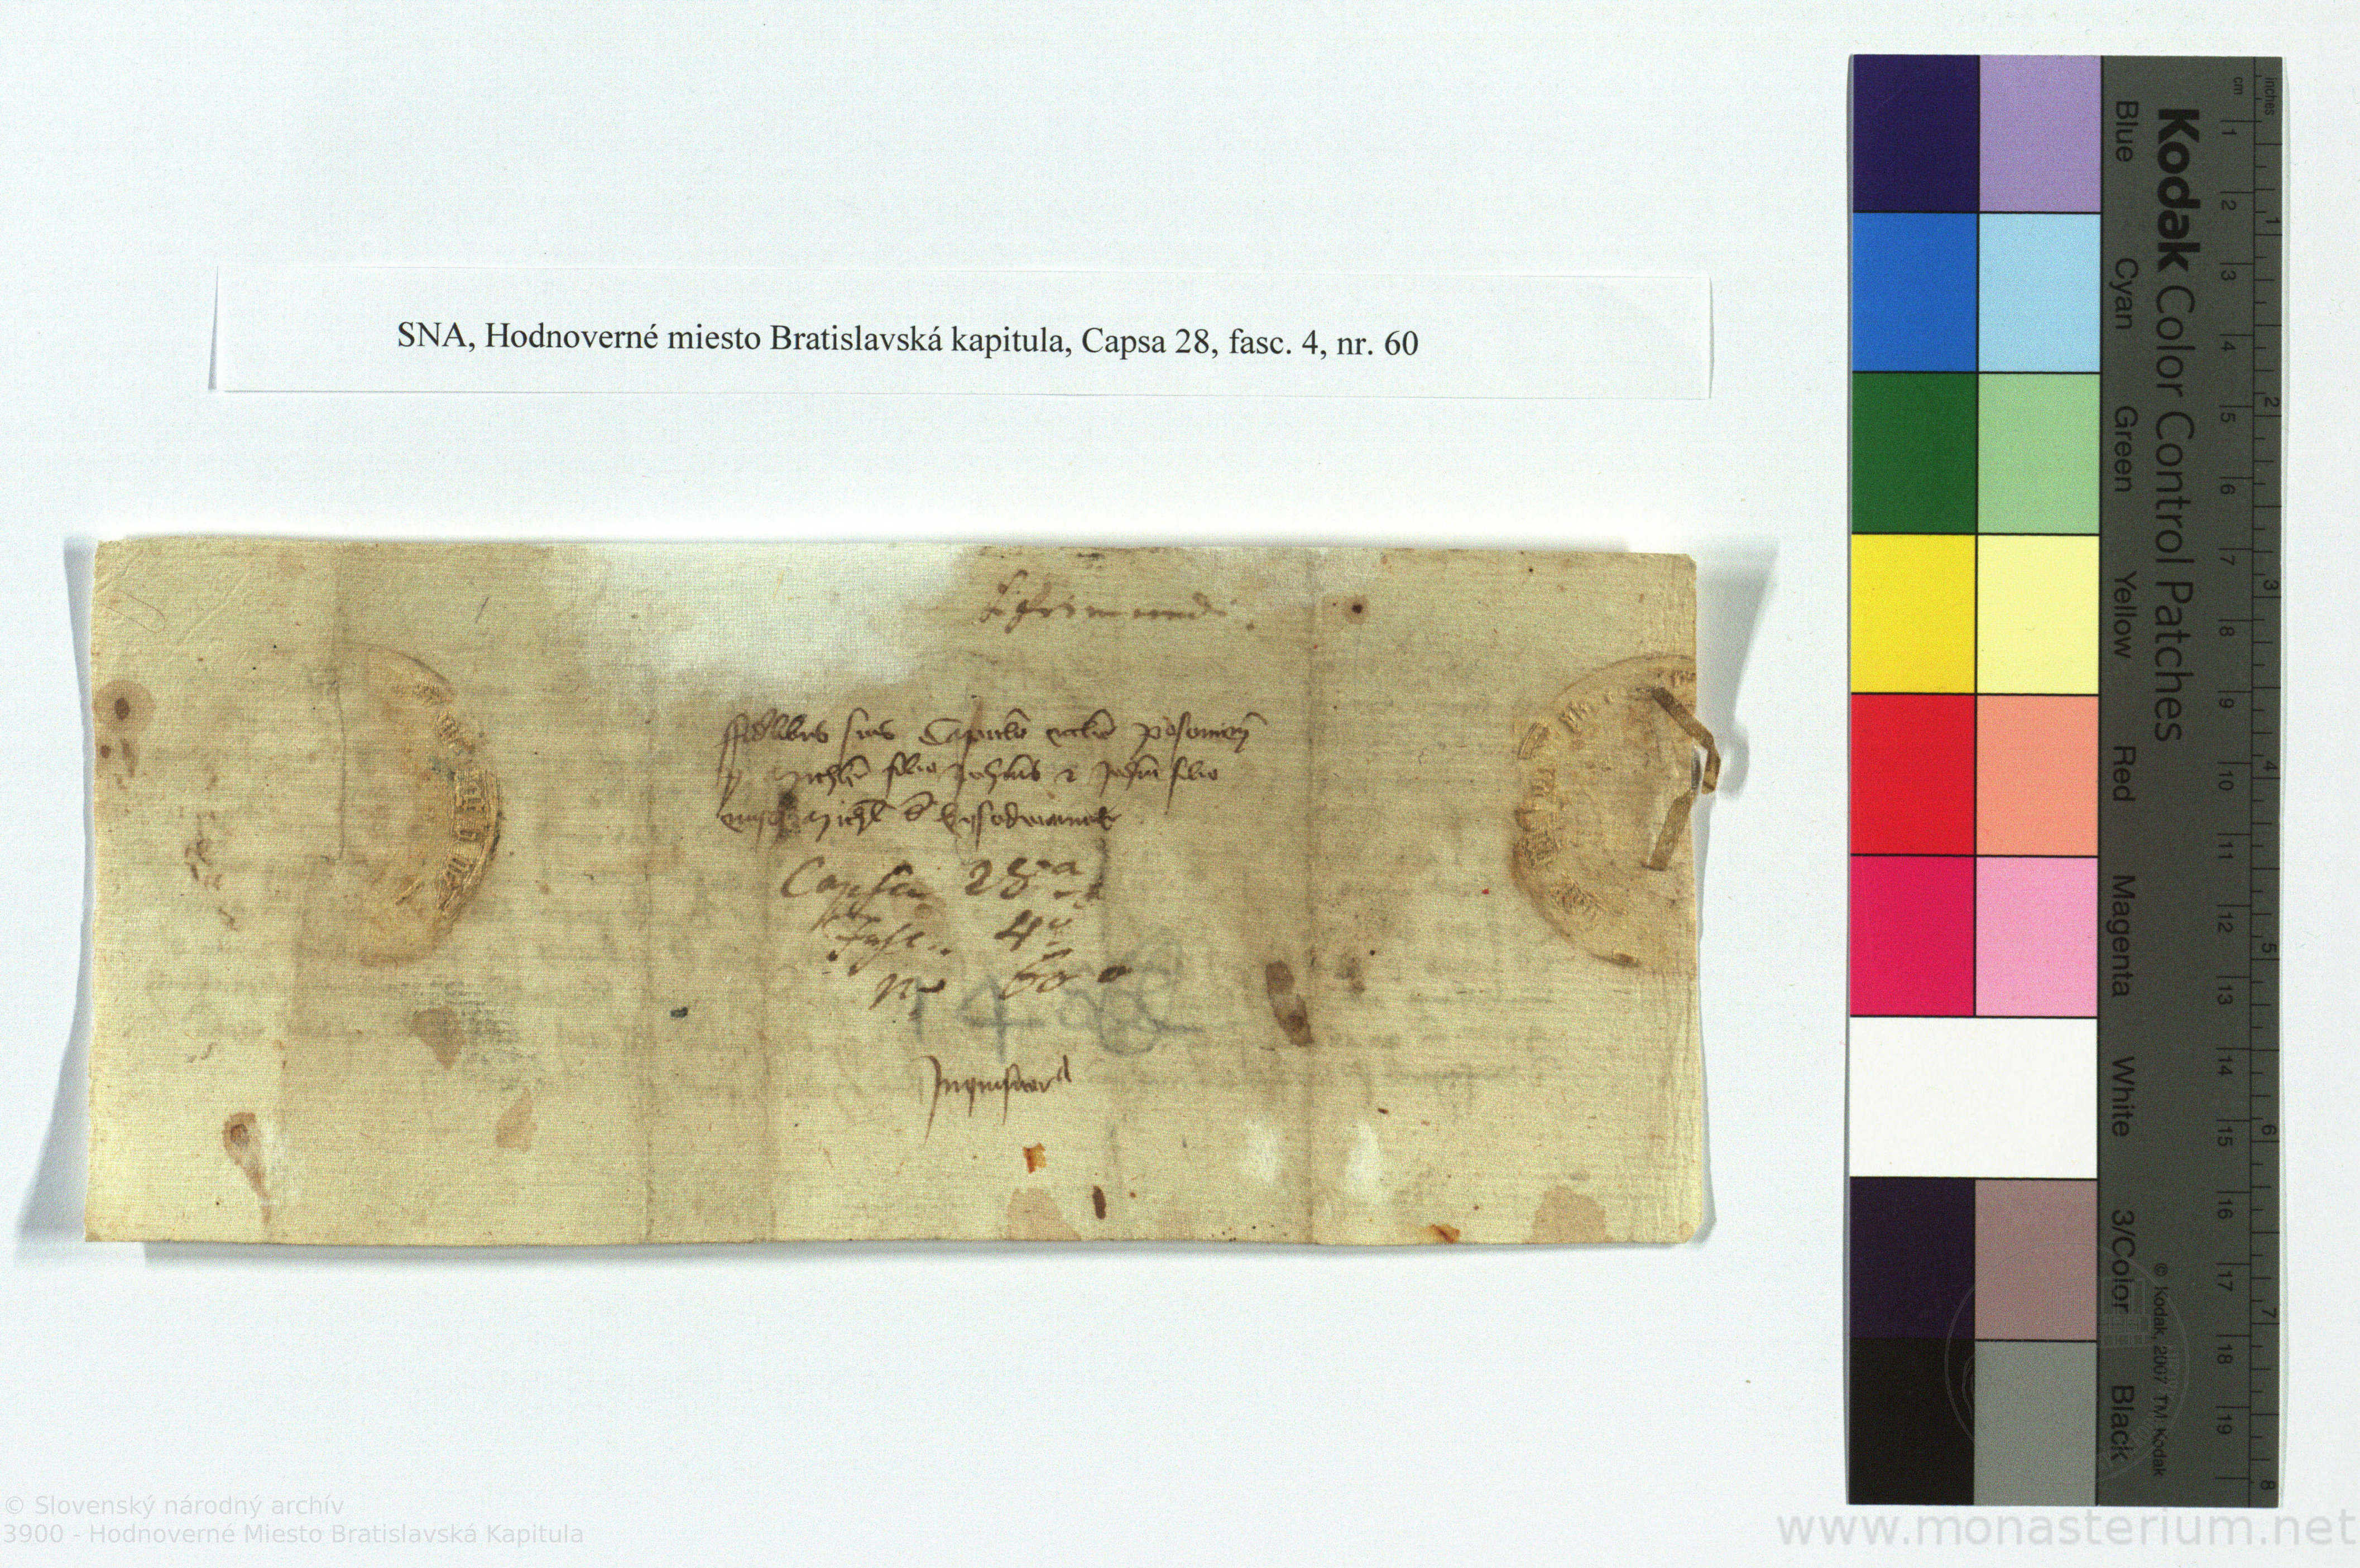 SNA, Hodnoverné miesto Bratislavská kapitula, Capsa 28, fasc. 4, nr. 60
Sigismundi.
ffidelibus suis Capitulo ecclie posonien
p Michle filio Johnis z Johne filio
Michl de
Capsa 28a
Fasc. 4
No 60
Kodak Color Control Patches
Blue Cyan Green Yellow Red Magenta White 3/Color Black
cm 1 2 3 4 5 6 7 8 9 10 11 12 13 14 15 16 17 18 19
inches 1 2 3 4 5 6 7 8
© Kodak, 2007 TM: Kodak
© Slovenský národný archív
3900 - Hodnoverné Miesto Bratislavská Kapitula
www.monasterium.net